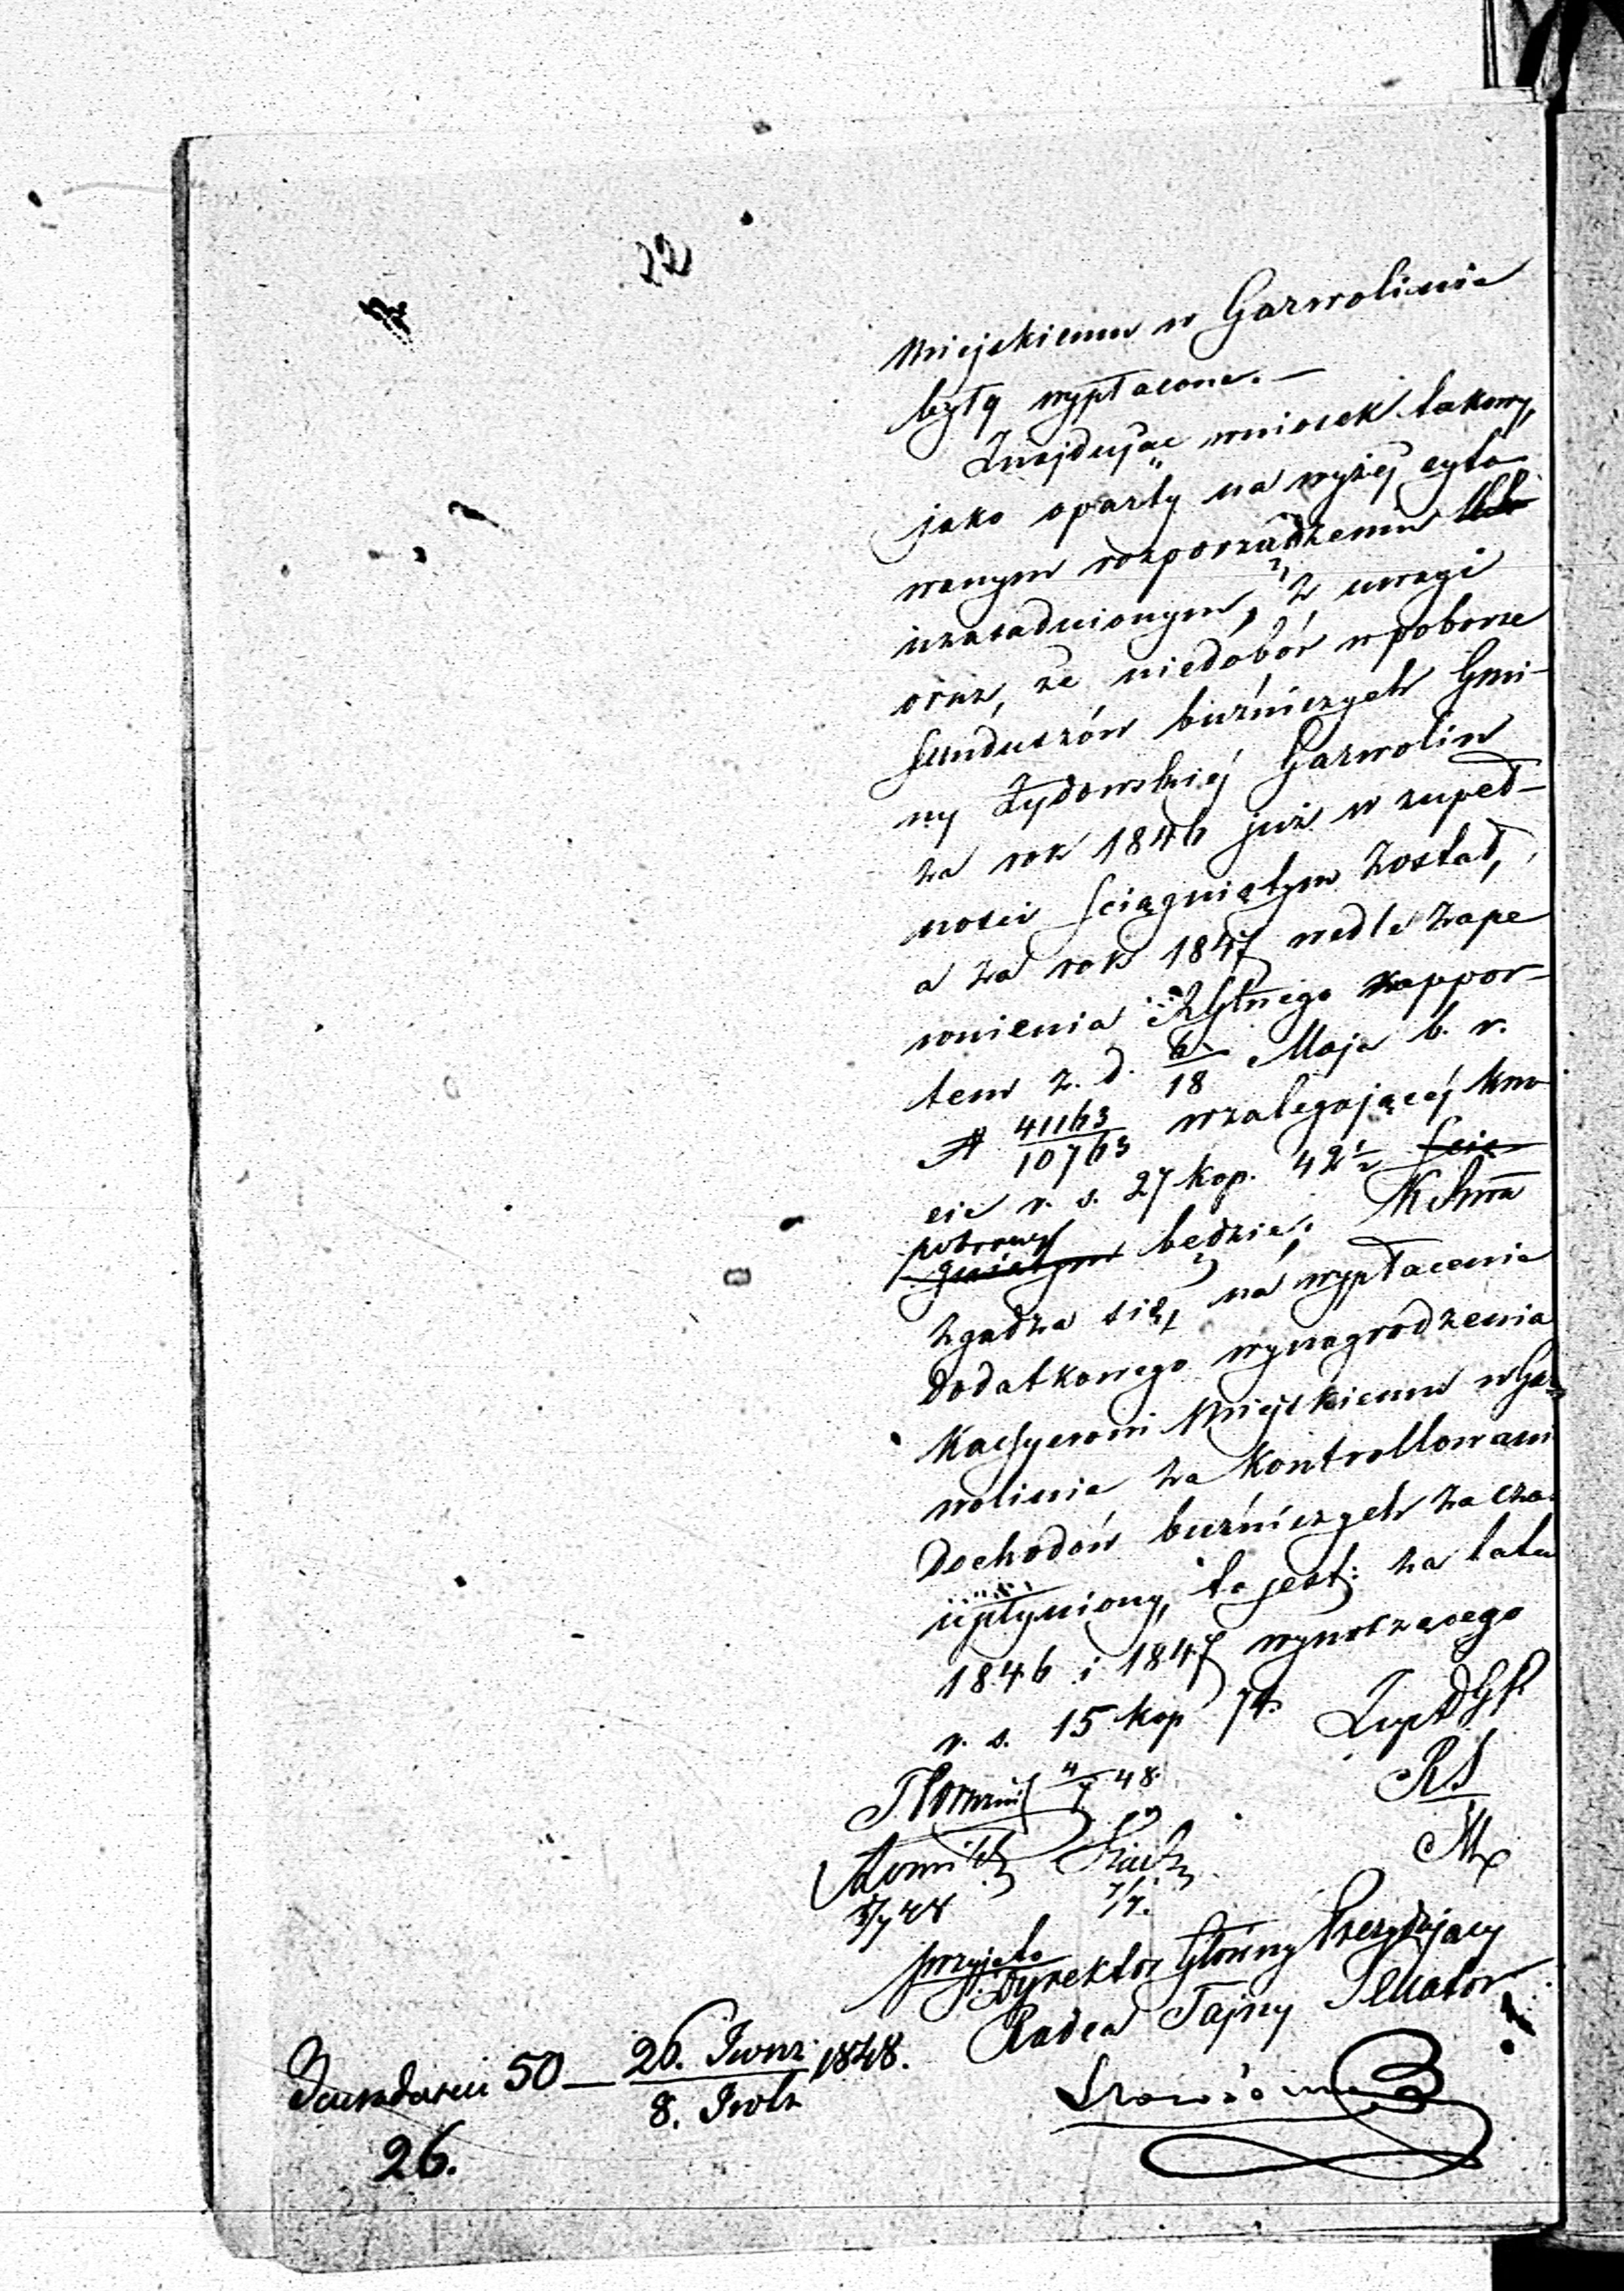 22
Miejskiemu w Garwolinie
były wypłacone. —
Znajdując wniosek takowy,
jako oparty na wyżej cyto
wanym rozporządzeniu
uzasadnionym, z uwagi
oraz, że niedobór w poborze
funduszów bużniczych Gmi-
ny Żydowskiej Garwolin
za rok 1846 już w zupeł-
ności ściągniętym został,
a za rok 1847 wedle zape
wnienia Rządu Głnego rappor-
tem z d. 6/18 Maja b. r.
N 41163/10763 w zalegającej kwo
cie r. s. 27 kop. 42½ ścią
pobrany
gniętym będzie; K Rząwa
zgadza się, na wypłacenie
dodatkowego wynagrodzenia
Kassyerowi Miejskiemu w Gar
wolinie za kontrollowani
dochodów bużniczych za cza
upłyniony, to jest: za lata
1846 i 1847 wynoszącego
r. s. 15 kop 74.
4/7 48.
RS
5/7 48
7/7.
przyjęto
Dyrektor Główny Prezydujący
Radca Tajny Senator
50 — 26. Iюня/8. Iюля 1848.
26.